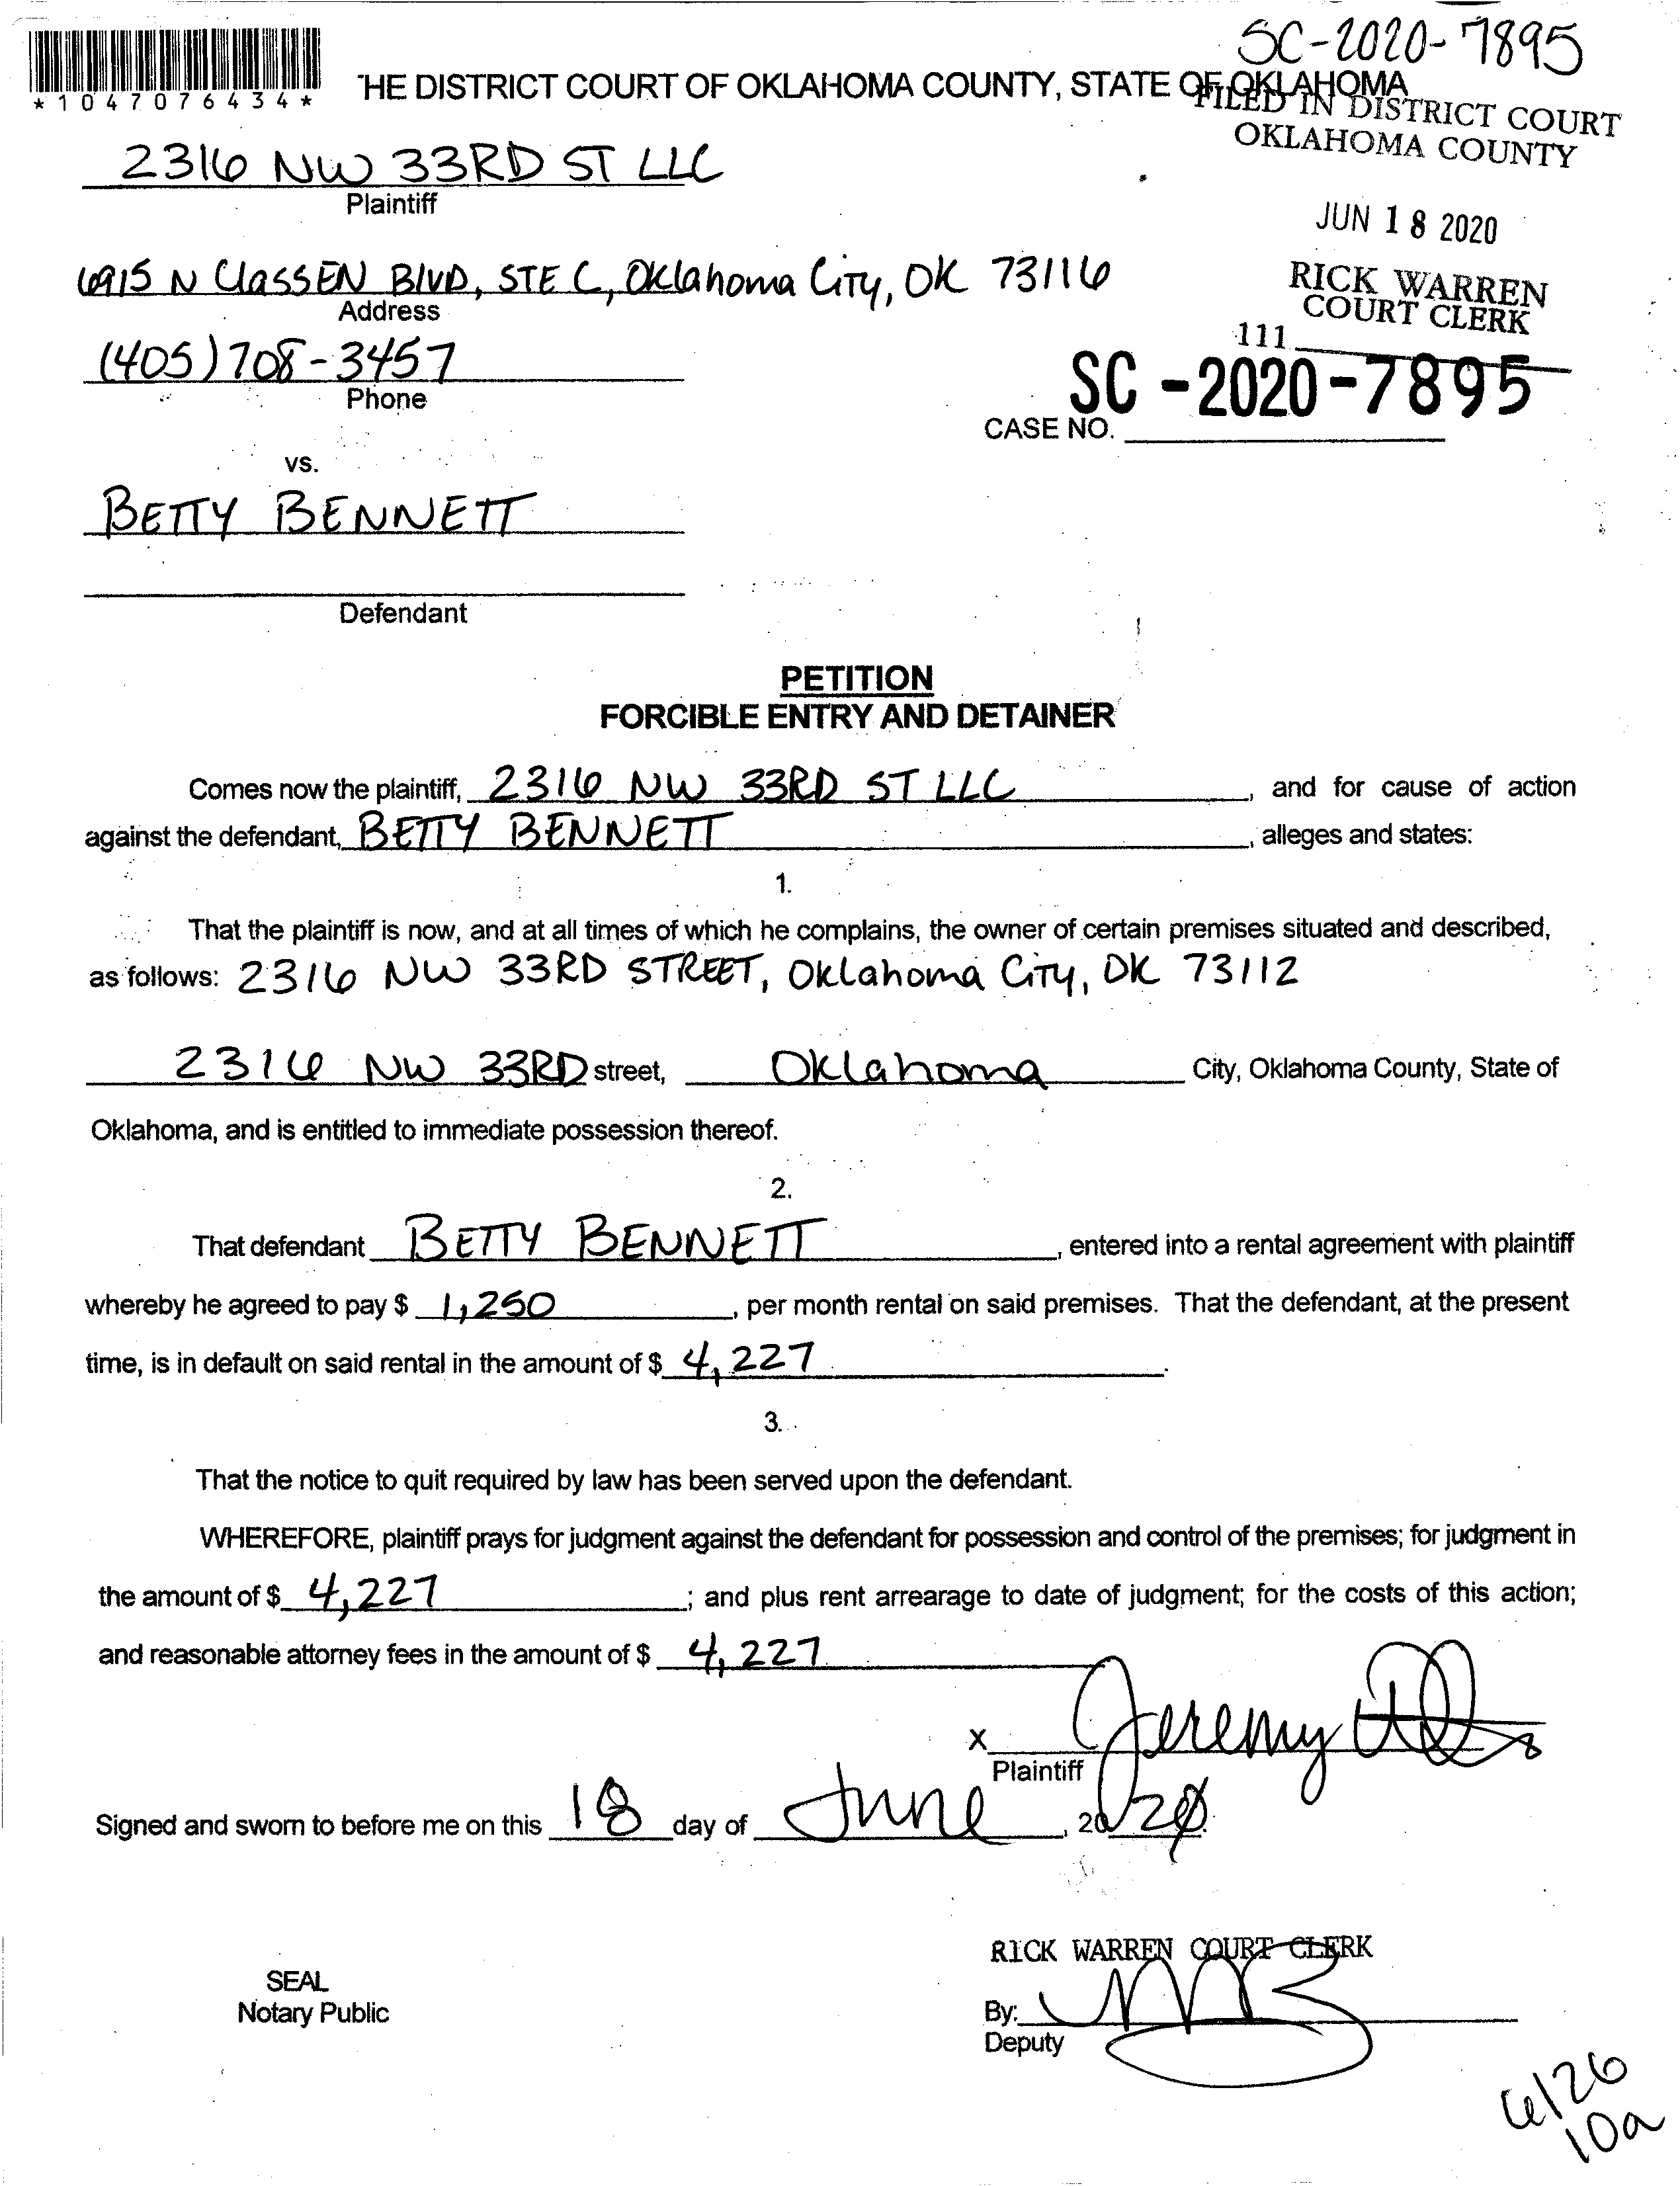 SC-2020-7895
*1047076434*
THE DISTRICT COURT OF OKLAHOMA COUNTY, STATE OF OKLAHOMA
FILED IN DISTRICT COURT
OKLAHOMA COUNTY
2316 NW 33RD ST LLC
Plaintiff
JUN 18 2020
6915 N ClassEN BlvD, STE C, Oklahoma City, OK 73116
Address
RICK WARREN
COURT CLERK
111
(405) 708-3457
Phone
SC-2020-7895
CASE NO.
vs.
BETTY BENNETT
Defendant
PETITION
FORCIBLE ENTRY AND DETAINER
Comes now the plaintiff, 2316 NW 33RD ST LLC, and for cause of action
against the defendant, BETTY BENNETT, alleges and states:
1.
That the plaintiff is now, and at all times of which he complains, the owner of certain premises situated and described,
as follows: 2316 NW 33RD STREET, Oklahoma City, OK 73112
2316 NW 33RD street, Oklahoma City, Oklahoma County, State of
Oklahoma, and is entitled to immediate possession thereof.
2.
That defendant BETTY BENNETT, entered into a rental agreement with plaintiff
whereby he agreed to pay $ 1,250, per month rental on said premises. That the defendant, at the present
time, is in default on said rental in the amount of $ 4,227.
3.
That the notice to quit required by law has been served upon the defendant.
WHEREFORE, plaintiff prays for judgment against the defendant for possession and control of the premises; for judgment in
the amount of $ 4,227; and plus rent arrearage to date of judgment; for the costs of this action;
and reasonable attorney fees in the amount of $ 4,227
X Jeremy
Plaintiff
Signed and sworn to before me on this 18 day of June, 2020.
RICK WARREN COURT CLERK
SEAL
Notary Public
By:
Deputy
6/26
10a